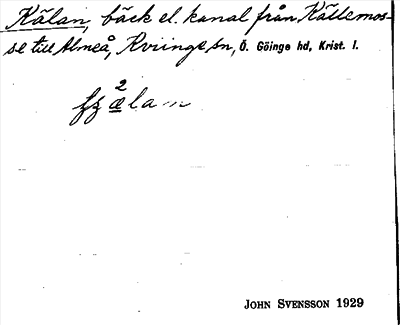 Kälan, bäck el. kanal från Källemos-
se till Almeå, Kviinge sn, Ö. Göinge hd, Krist. l.
2
JOHN SVENSSON 1929